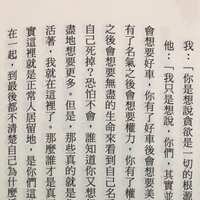 我：「你是想說貪欲是一切的根源
他：「我只是想說，你們，其實並
會想要好車，你有了好車後會想要美
有了名氣之後會想要權力，你有了權
之後會想要無盡的生命來看到自己名
自己死掉？恐怕不會，誰知道你又想
盡地想要更多。但是，那些真的就是
活著，我就在這裡了。那麼誰才是真
實這裡就是正常人居留地，是你們這
在一起，到最後都不清楚自己為什麼